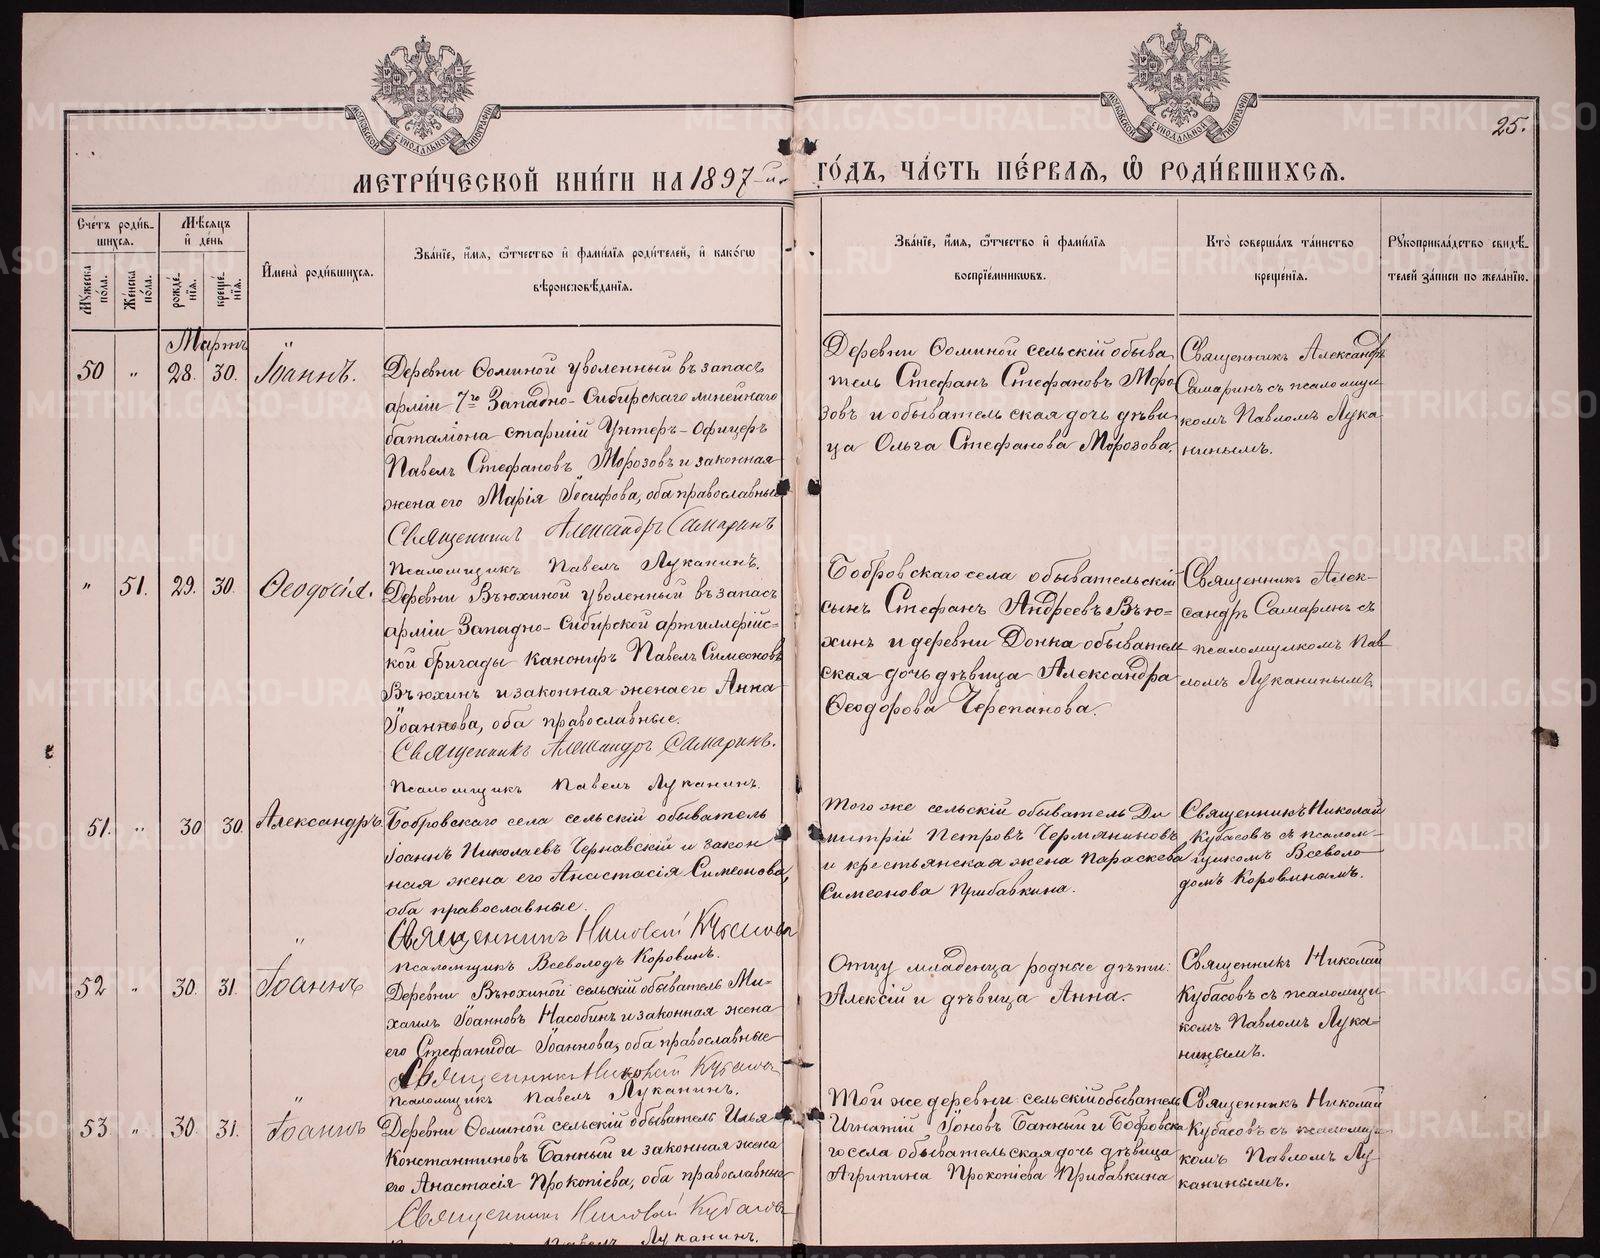 25.
МЕТРИ́ЧЕСКОЙ КНИ́ГИ НА 1897-й ГО́ДЪ, ЧА́СТЬ ПЕ́РВАЯ, Ѡ РОДИ́ВШИХСЯ.
Сче́тъ роди́в-
шихся.
Мѣ́сяцъ
и де́нь
Му́жеска по́ла.
Же́нска по́ла.
рожде́-
нїя.
креще́-
нїя.
Имена̀ роди́вшихся.
Зва́нїе, и́мя, ѻ́тчество и фами́лїя роди́телей, и како́гѡ
вѣроисповѣ́данїя.
Зва́нїе, и́мя, ѻ́тчество и фами́лїя
воспрїе́мникѡвъ.
Кто̀ соверша́лъ та́инство
креще́нїя.
Рукоприкла́дство свидѣ́-
телей за́писи по жела́нїю.
Мартъ
50 " 28. 30. Іоаннъ.
Деревни Ѳоминой уволенный въ запасъ
арміи 7го Западно-Сибирскаго линейнаго
баталіона старшій Унтеръ-Офицеръ
Павелъ Стефановъ Морозовъ и законная
жена его Марія Іосифова, оба православные
Священникъ Александръ Самаринъ
Псаломщикъ Павелъ Луканинъ.
Деревни Ѳоминой сельскій обыва
тель Стефанъ Стефановъ Моро
зовъ и обывательская дочь дѣви
ца Ольга Стефанова Морозова.
Священникъ Александръ
Самаринъ съ псаломщи
комъ Павломъ Лука
нинымъ.
" 51. 29. 30. Ѳеодосія.
Деревни Вьюхиной уволенный въ запасъ
арміи Западно-Сибирской артиллерійс-
кой бригады канониръ Павелъ Симеоновъ
Вьюхинъ и законная жена его Анна
Іоаннова, оба православные.
Священникъ Александръ Самаринъ.
Псаломщикъ Павелъ Луканинъ.
Бобровскаго села обывательскій
сынъ Стефанъ Андреевъ Вью-
хинъ и деревни Донка обыватель
ская дочь дѣвица Александра
Ѳеодорова Черепанова.
Священникъ Алек-
сандръ Самаринъ съ
псаломщикомъ Пав
ломъ Луканинымъ
51. " 30 30. Александръ.
Бобровскаго села сельскій обыватель
Іоаннъ Николаевъ Чернавскій и закон
ная жена его Анастасія Симеонова,
оба православные.
Священникъ Николай Кубасовъ
Псаломщикъ Всеволодъ Коровинъ.
Того же сельскій обыватель Ди
митрій Петровъ Чермяниновъ
и крестьянская жена Параскева
Симеонова Прибавкина.
Священникъ Николай
Кубасовъ съ псалом-
щикомъ Всеволо
домъ Коровинымъ.
52 " 30. 31. Іоаннъ
Деревни Вьюхиной сельскій обыватель Ми-
хаилъ Іоанновъ Насобинъ и законная жена
его Стефанида Іоаннова, оба православные
Священникъ Николай Кубасовъ
Псаломщикъ Павелъ Луканинъ.
Отцу младенца родные дѣти:
Алексій и дѣвица Анна.
Священникъ Николай
Кубасовъ съ псаломщи
комъ Павломъ Лука-
нинымъ.
53 " 30. 31. Іоаннъ
Деревни Ѳоминой сельскій обыватель Илья
Константиновъ Банный и законная жена
его Анастасія Прокопіева, оба православные
Священникъ Николай Кубасовъ
Павелъ Луканинъ.
Той же деревни сельскій обыватель
Игнатій Іоновъ Банный и Бобровска
го села обывательская дочь дѣвица
Агрипина Прокопіева Прибавкина
Священникъ Николай
Кубасовъ съ псаломщи
комъ Павломъ Лу
канинымъ.